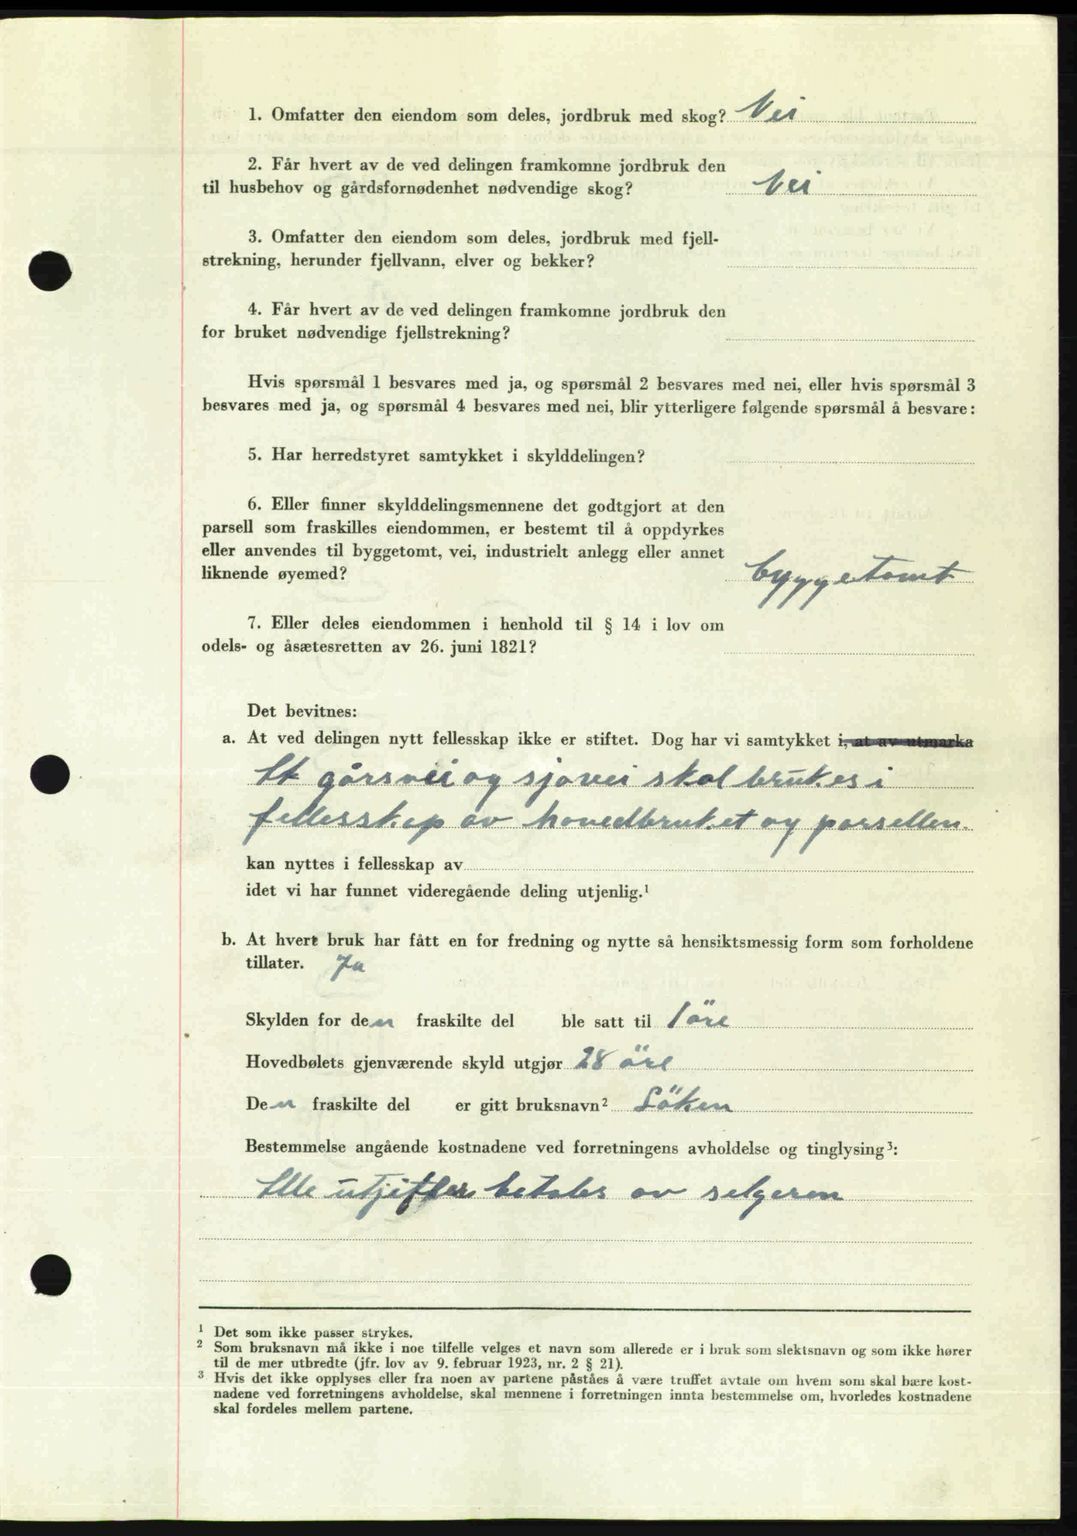 1. Omfatter den eiendom som deles, jordbruk med skog? Nei
2. Får hvert av de ved delingen framkomne jordbruk den
til husbehov og gårdsfornødenhet nødvendige skog? Nei
3. Omfatter den eiendom som deles, jordbruk med fjell-
strekning, herunder fjellvann, elver og bekker?
4. Får hvert av de ved delingen framkomne jordbruk den
for bruket nødvendige fjellstrekning?
Hvis spørsmål 1 besvares med ja, og spørsmål 2 besvares med nei, eller hvis spørsmål 3
besvares med ja, og spørsmål 4 besvares med nei, blir ytterligere følgende spørsmål å besvare:
5. Har herredstyret samtykket i skylddelingen?
6. Eller finner skylddelingsmennene det godtgjort at den
parsell som fraskilles eiendommen, er bestemt til å oppdyrkes
eller anvendes til byggetomt, vei, industrielt anlegg eller annet
liknende øyemed? byggetomt
7. Eller deles eiendommen i henhold til § 14 i lov om
odels- og åsætesretten av 26. juni 1821?
Det bevitnes:
a. At ved delingen nytt fellesskap ikke er stiftet. Dog har vi samtykket i, at av utmarka
At gårsvei og sjøvei skal brukes i
fellesskap av hovedbruket og parsellen.
kan nyttes i fellesskap av
idet vi har funnet videregående deling utjenlig.¹
b. At hvert bruk har fått en for fredning og nytte så hensiktsmessig form som forholdene
tillater. Ja
Skylden for den fraskilte del ble satt til 1 öre
Hovedbølets gjenværende skyld utgjør 28 öre
Den fraskilte del er gitt bruksnavn² Löken
Bestemmelse angående kostnadene ved forretningens avholdelse og tinglysing³:
Alle utjifter betales av selgeren
¹ Det som ikke passer strykes.
² Som bruksnavn må ikke i noe tilfelle velges et navn som allerede er i bruk som slektsnavn og som ikke hører
til de mer utbredte (jfr. lov av 9. februar 1923, nr. 2 § 21).
³ Hvis det ikke opplyses eller fra noen av partene påståes å være truffet avtale om hvem som skal bære kost-
nadene ved forretningens avholdelse, skal mennene i forretningen innta bestemmelse om, hvorledes kostnadene
skal fordeles mellem partene.